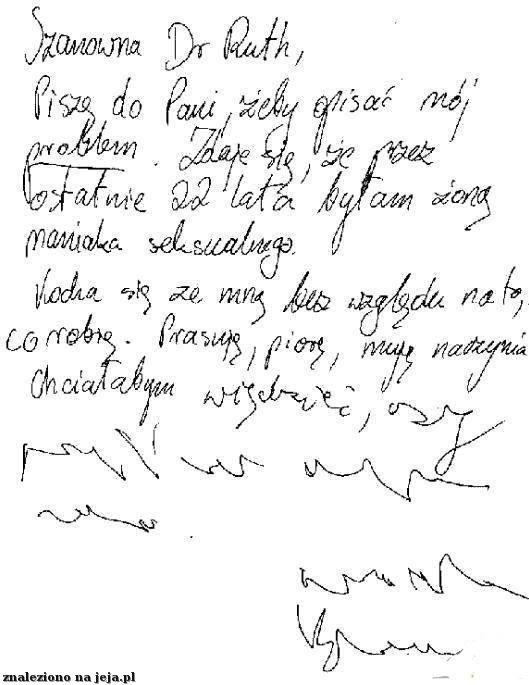 Szanowna Dr Ruth,
Piszę do Pani, żeby opisać mój
problem. Zdaje się, że przez
ostatnie 22 lata byłam żoną
maniaka seksualnego.
Kocha się ze mną bez względu na to,
co robię. Prasuję, piorę, myję naczynia
Chciałabym wiedzieć, czy
znaleziono na jeja.pl